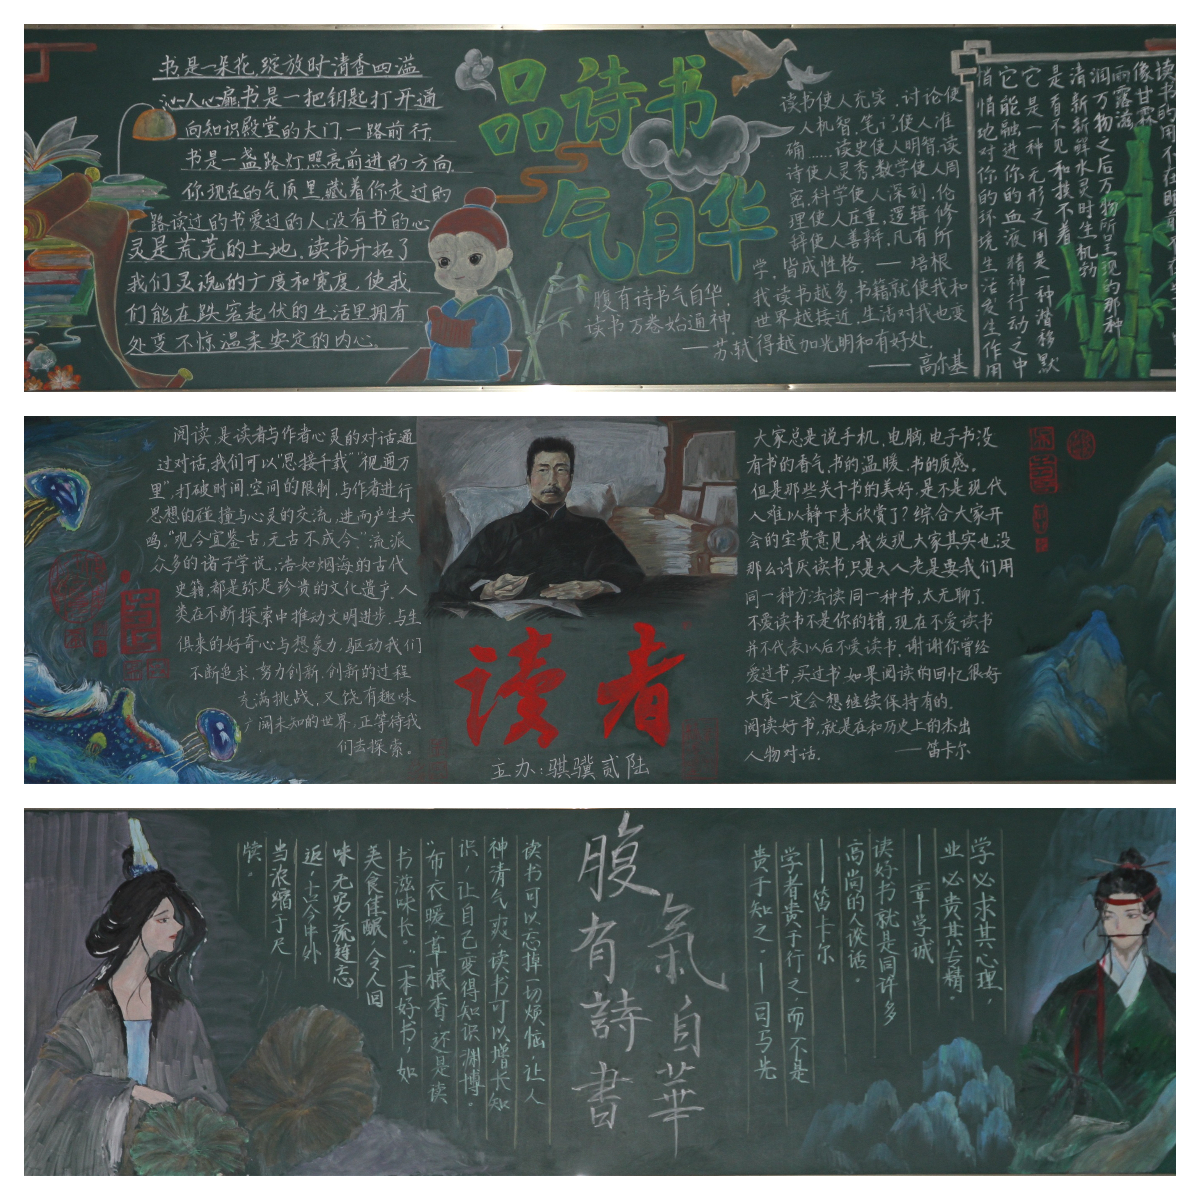 书是一朵花,绽放时清香四溢
沁人心扉书是一把钥匙打开通
向知识殿堂的大门,一路前行,
书是一盏路灯照亮前进的方向.
你现在的气质里藏着你走过的
路读过的书爱过的人,没有书的心
灵是荒芜的土地,读书开拓了
我们灵魂的广度和宽度,使我
们能在跌宕起伏的生活里拥有
处变不惊温柔安定的内心.
品诗书
气自华
腹有诗书气自华,
读书万卷始通神.
——苏轼
读书使人充实,讨论使
人机智,笔记使人准
确……读史使人明智,读
诗使人灵秀,数学使人周
密,科学使人深刻,伦
理使人庄重,逻辑修
辞使人善辩,凡有所
学,皆成性格.——培根
我读书越多,书籍就使我和
世界越接近,生活对我也变
得越加光明和有好处.
——高尔基
像甘霖
雨露滋
润万物之后万物所呈现的那种
清新新鲜水灵时生机勃
是看不见和摸不着
它是一种无形之用是一种潜移默
它能融进你的血液精神行动之中
悄悄地对你的环境生活发生作用
阅读,是读者与作者心灵的对话通
过对话,我们可以“思接千载”“视通万
里”,打破时间,空间的限制,与作者进行
思想的碰撞与心灵的交流,进而产生共
鸣。“观今宜鉴古,无古不成今。”流派
众多的诸子学说,浩如烟海的古代
史籍,都是弥足珍贵的文化遗产,人
类在不断探索中推动文明进步.与生
俱来的好奇心与想象力,驱动我们
不断追求,努力创新,创新的过程
充满挑战,又饶有趣味
阔未知的世界,正等待我
们去探索。
读者
主办:骐骥贰陆
大家总是说手机,电脑,电子书没
有书的香气,书的温暖,书的质感。
但是那些关于书的美好,是不是现代
人难以静下来欣赏了?综合大家开
会的宝贵意见,我发现大家其实也没
那么讨厌读书,只是大人老是要我们用
同一种方法读同一种书,太无聊了.
不爱读书不是你的错,现在不爱读书
并不代表以后不爱读书,谢谢你曾经
爱过书,买过书如果阅读的回忆很好
大家一定会想继续保持有的.
阅读好书,就是在和历史上的杰出
人物对话.
——笛卡尔
学必求其心理,
业必贵其专精。
——章学诚
读好书就是同许多
高尚的人谈话。
——笛卡尔
学者贵于行之,而不是
贵于知之.——司马光
氣自華
腹有詩書
读书可以忘掉一切烦恼,让人
神清气爽,读书可以增长知
识,让自己变得知识渊博。
“布衣暖,草根香,还是读
书滋味长。”一本好书,如
美食佳酿,令人回
味无穷,流连忘
返,古今中外
当浓缩于尺
牍。